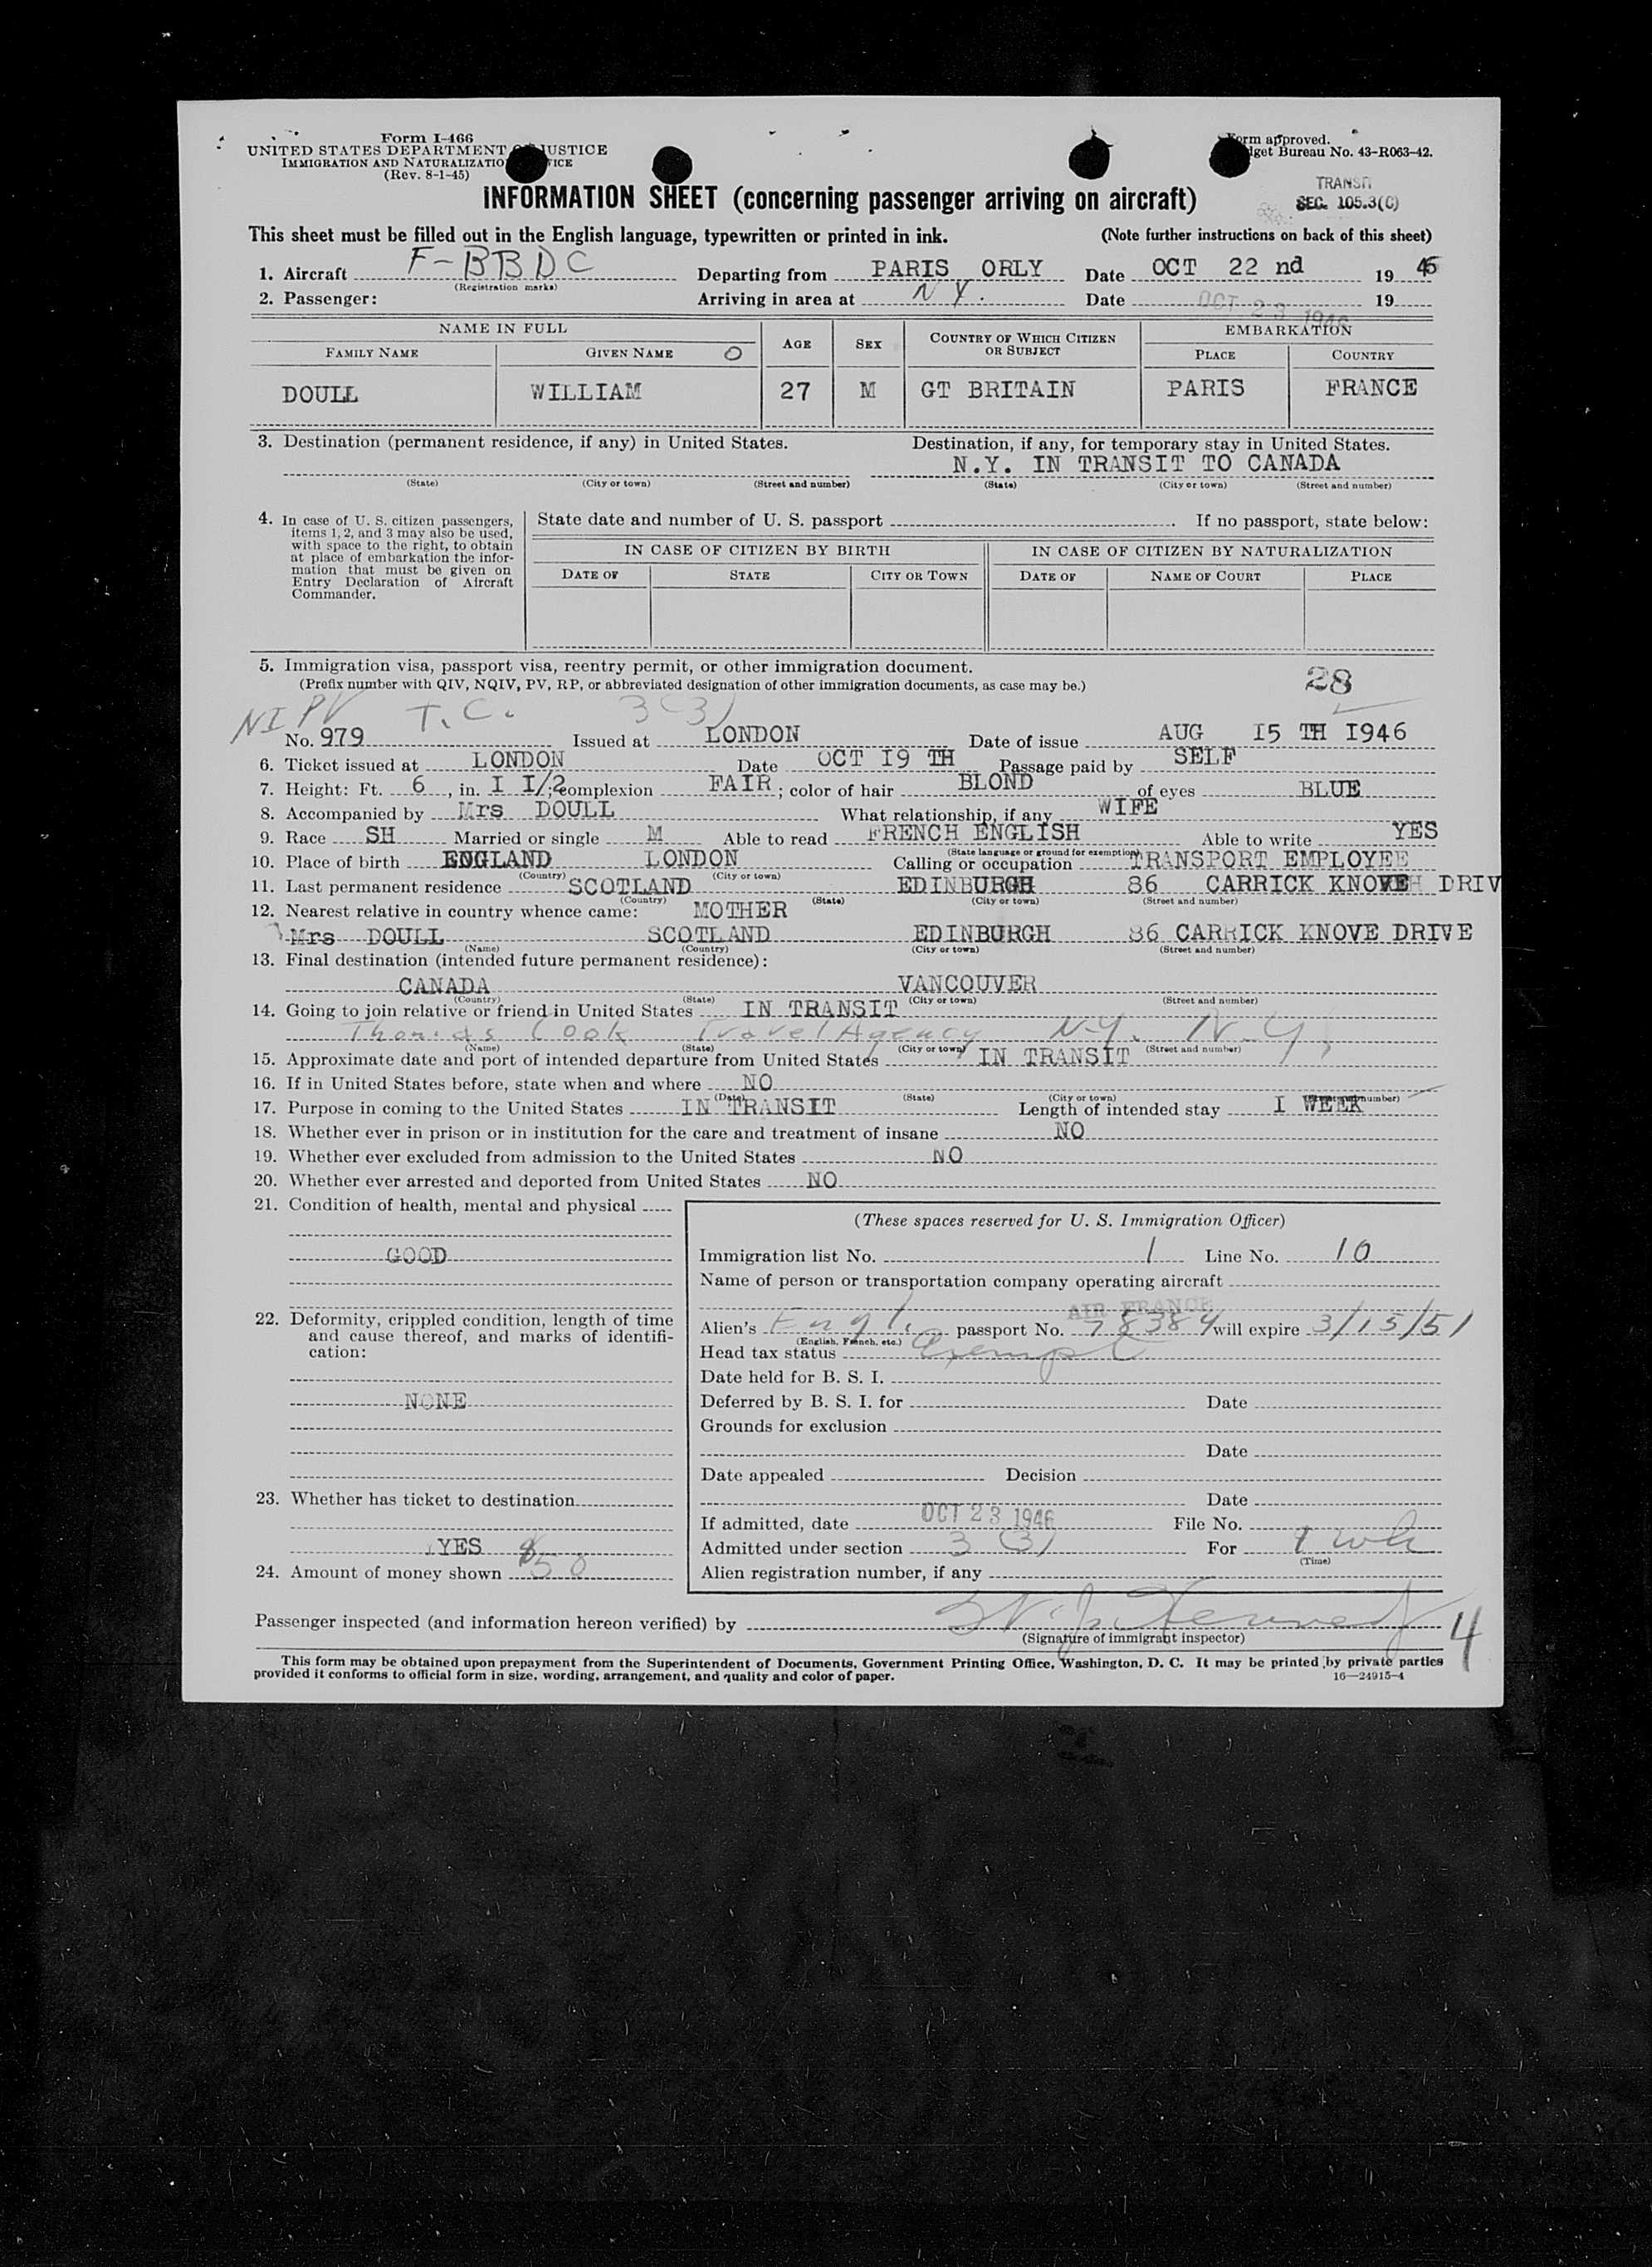 Form I-466
UNITED STATES DEPARTMENT OF JUSTICE
IMMIGRATION AND NATURALIZATION SERVICE
(Rev. 8-1-45)
Form approved.
Budget Bureau No. 43-R063-42.
TRANSIT
SEC. 105.3(C)
INFORMATION SHEET (concerning passenger arriving on aircraft)
This sheet must be filled out in the English language, typewritten or printed in ink. (Note further instructions on back of this sheet)
1. Aircraft F-BBDC Departing from PARIS ORLY Date OCT 22 nd 19 46
(Registration marks)
2. Passenger: Arriving in area at N Y. Date OCT 23 1946 19
NAME IN FULL AGE SEX COUNTRY OF WHICH CITIZEN OR SUBJECT EMBARKATION
FAMILY NAME GIVEN NAME O PLACE COUNTRY
DOULL WILLIAM 27 M GT BRITAIN PARIS FRANCE
3. Destination (permanent residence, if any) in United States. Destination, if any, for temporary stay in United States.
N.Y. IN TRANSIT TO CANADA
(State) (City or town) (Street and number) (State) (City or town) (Street and number)
4. In case of U. S. citizen passengers, items 1, 2, and 3 may also be used, with space to the right, to obtain at place of embarkation the information that must be given on Entry Declaration of Aircraft Commander.
State date and number of U. S. passport . If no passport, state below:
IN CASE OF CITIZEN BY BIRTH IN CASE OF CITIZEN BY NATURALIZATION
DATE OF STATE CITY OR TOWN DATE OF NAME OF COURT PLACE
5. Immigration visa, passport visa, reentry permit, or other immigration document.
(Prefix number with QIV, NQIV, PV, RP, or abbreviated designation of other immigration documents, as case may be.)
28
NI PV T.C. 3(3)
No. 979 Issued at LONDON Date of issue AUG I5 TH I946
6. Ticket issued at LONDON Date OCT I9 TH Passage paid by SELF
7. Height: Ft. 6, in. I I/2; complexion FAIR; color of hair BLOND of eyes BLUE
8. Accompanied by Mrs DOULL What relationship, if any WIFE
9. Race SH Married or single M Able to read FRENCH ENGLISH Able to write YES
(State language or ground for exemption)
10. Place of birth ENGLAND LONDON Calling or occupation TRANSPORT EMPLOYEE
(Country) (City or town)
11. Last permanent residence SCOTLAND EDINBURGH 86 CARRICK KNOWE DRIV
(Country) (State) (City or town) (Street and number)
12. Nearest relative in country whence came: MOTHER
Mrs DOULL SCOTLAND EDINBURGH 86 CARRICK KNOVE DRIVE
(Name) (Country) (City or town) (Street and number)
13. Final destination (intended future permanent residence):
CANADA VANCOUVER
(Country) (State) (City or town) (Street and number)
14. Going to join relative or friend in United States IN TRANSIT
Thomas Cook Travel Agency N.Y. N.Y.
(Name) (State) (City or town) (Street and number)
15. Approximate date and port of intended departure from United States IN TRANSIT
16. If in United States before, state when and where NO
(Date) (State) (City or town) (Street and number)
17. Purpose in coming to the United States IN TRANSIT Length of intended stay I WEEK
18. Whether ever in prison or in institution for the care and treatment of insane NO
19. Whether ever excluded from admission to the United States NO
20. Whether ever arrested and deported from United States NO
21. Condition of health, mental and physical
GOOD
22. Deformity, crippled condition, length of time and cause thereof, and marks of identification:
NONE
23. Whether has ticket to destination
YES
24. Amount of money shown $50
(These spaces reserved for U. S. Immigration Officer)
Immigration list No. 1 Line No. 10
Name of person or transportation company operating aircraft
AIR FRANCE
Alien's Engl. passport No. 78384 will expire 3/15/51
(English, French, etc.)
Head tax status Exempt
Date held for B. S. I.
Deferred by B. S. I. for Date
Grounds for exclusion
Date
Date appealed Decision
Date
If admitted, date OCT 23 1946 File No.
Admitted under section 3 (3) For 1 wk
(Time)
Alien registration number, if any
Passenger inspected (and information hereon verified) by
(Signature of immigrant inspector)
4
This form may be obtained upon prepayment from the Superintendent of Documents, Government Printing Office, Washington, D. C. It may be printed by private parties
provided it conforms to official form in size, wording, arrangement, and quality and color of paper. 16—24915-4